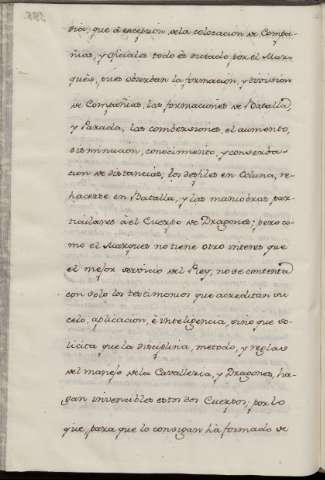 dió, que á excepcion de la colocacion de Compa-
ñias, y oficiales todo és dictado por el Mar-
qués, pues observan la formacion, y division
de Compañias, las formaciones de Batalla,
y Parada, las combersiones, el aumento,
disminucion, conocimiento, y conserba-
cion de distancias, los desfiles en Coluna, re-
hacerse en Batalla, y las maniobras par-
ticulares á el Cuerpo de Dragones; pero co-
mo el Marques no tiene otro interes que
el mejor servicio del Rey, no se contenta
con solo los testimonios que acreditan su
celo, aplicacion, é inteligencia, sino que so-
licita que la disciplina, metodo, y reglas
del manejo de la Cavalleria, y Dragones, ha-
gan invencibles estos dos Cuerpos, por lo
que, para que lo consigan há formado de